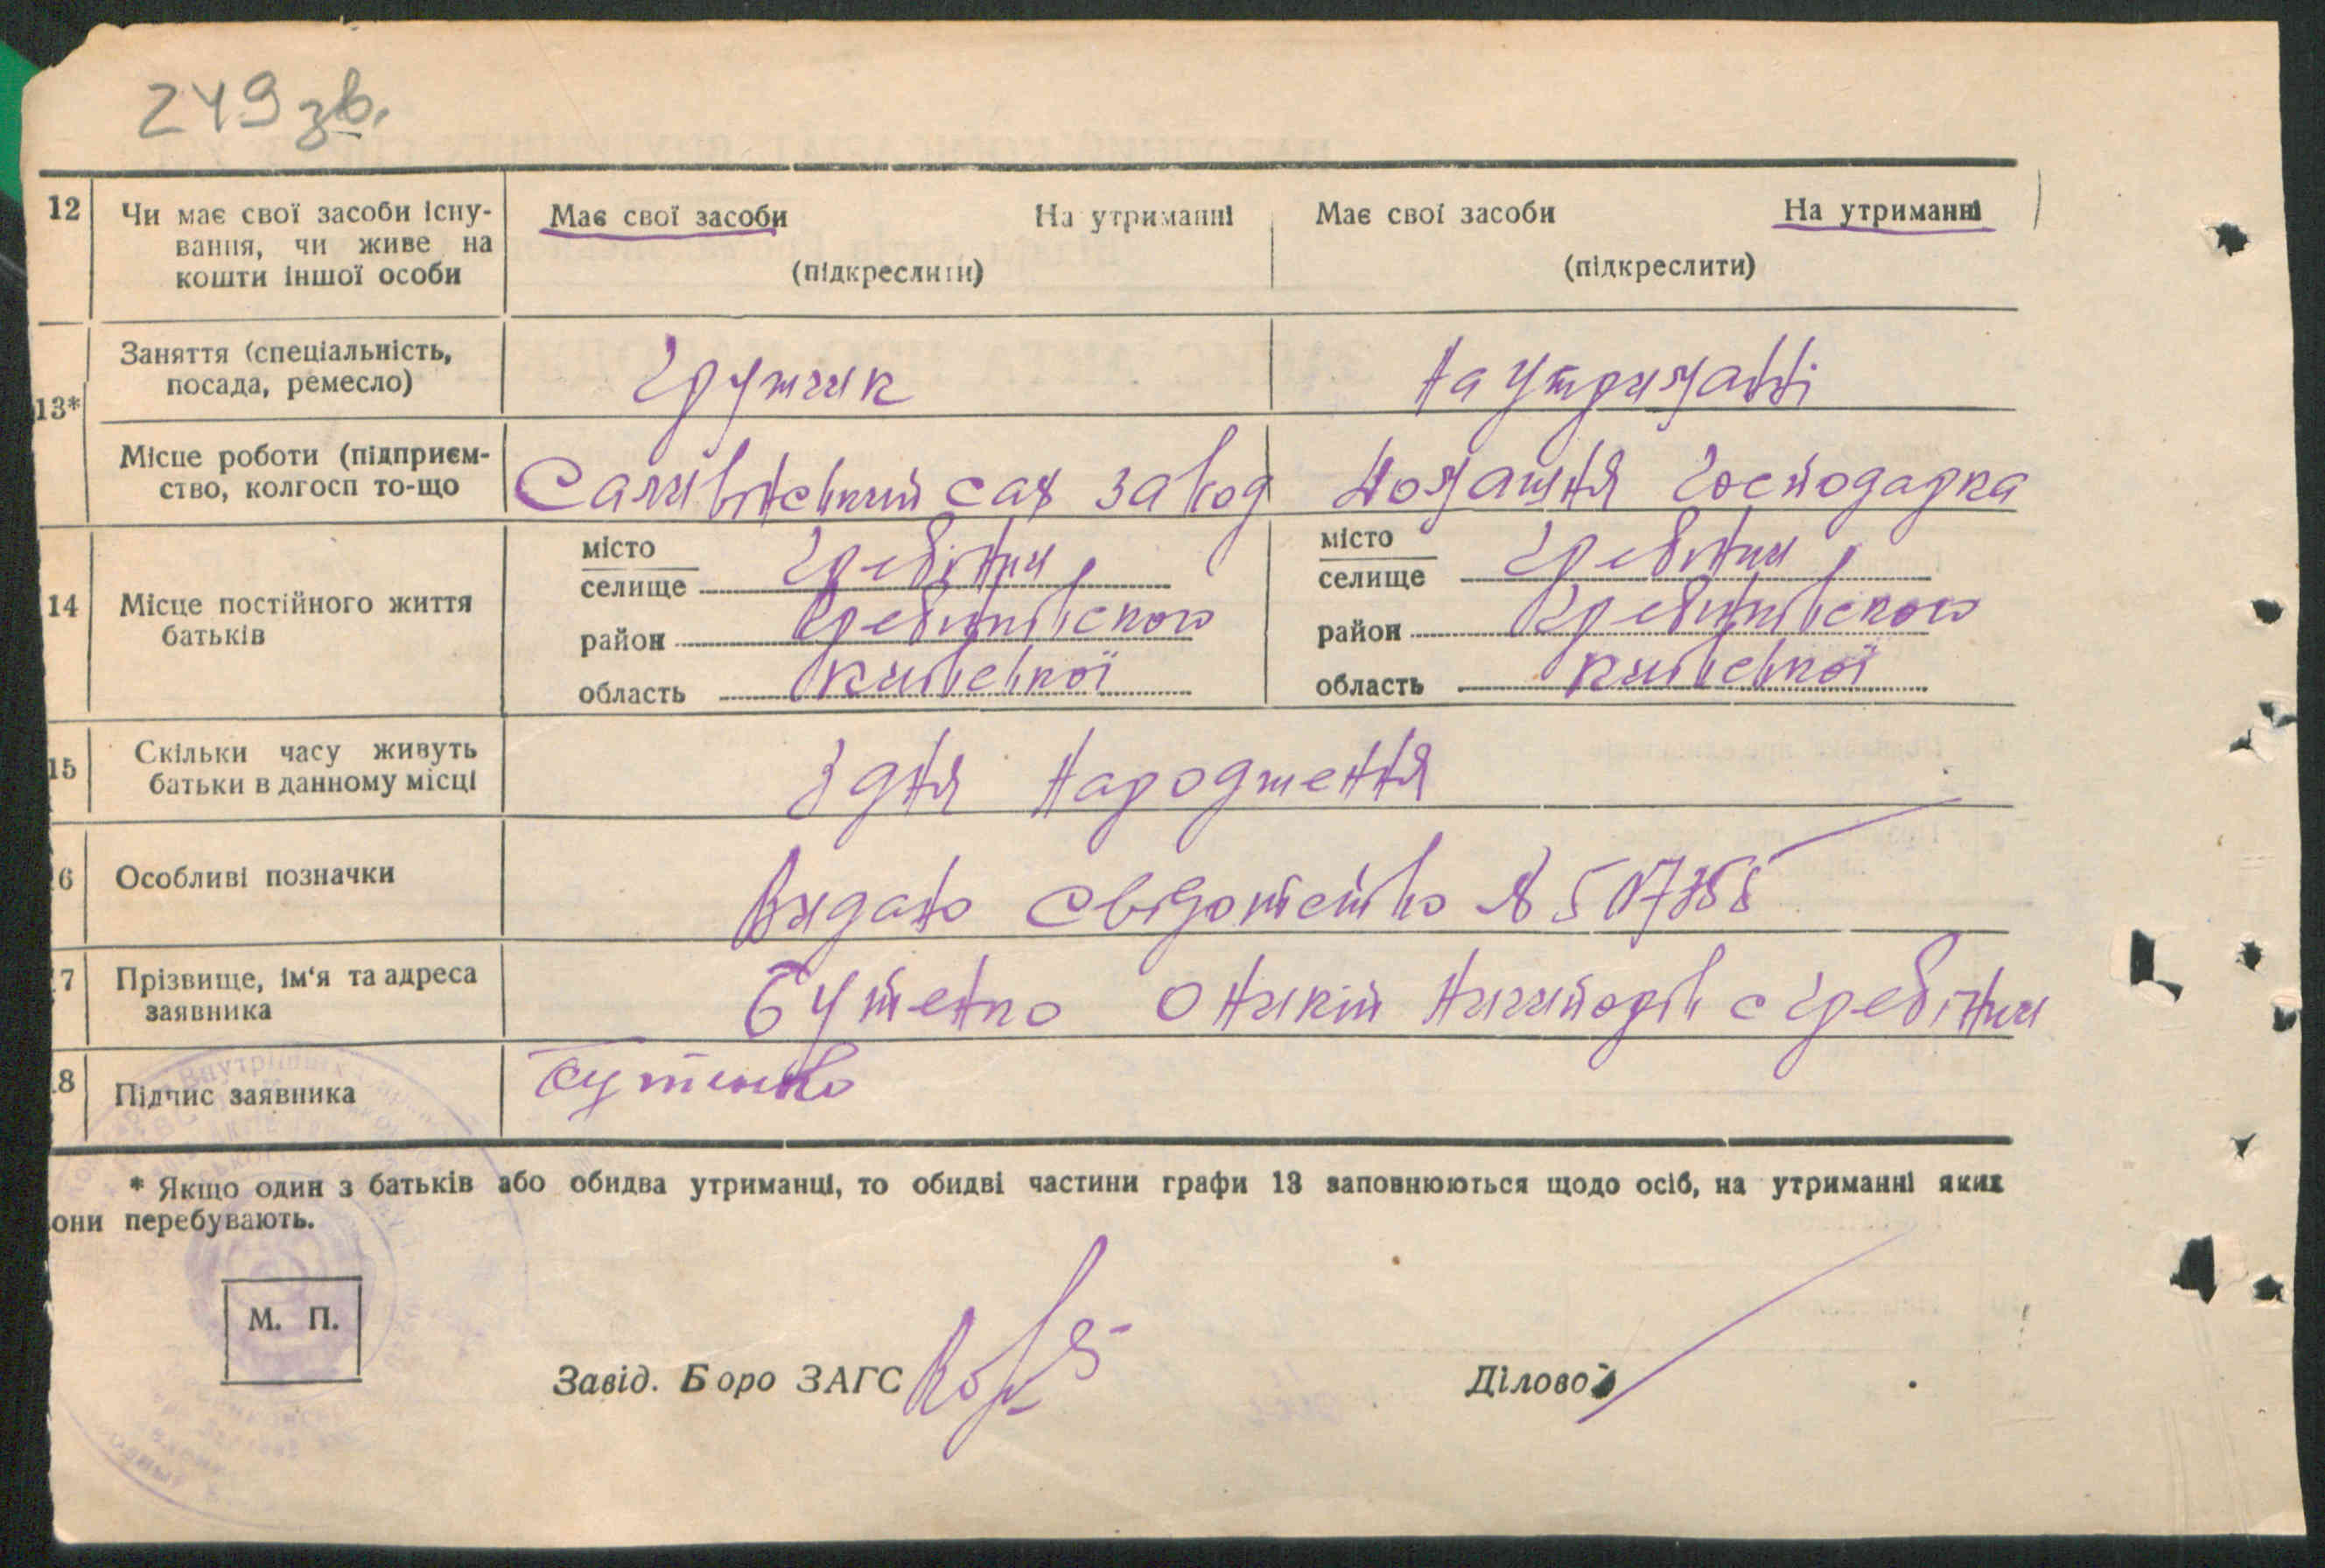 249 зв.
12 Чи має свої засоби існу- Має свої засоби На утриманні Має свої засоби На утриманні
вання, чи живе на
кошти іншої особи (підкреслити) (підкреслити)
Заняття (спеціальність, Грущик На утриманні
посада, ремесло)
13*
Місце роботи (підприєм- Саливінський сах завод Домашня Господарка
ство, колгосп то-що
місто Гребінки місто Гребінки
селище селище
14 Місце постійного життя район Гребінківского район Гребінківского
батьків
область Київської область Київської
15 Скільки часу живуть З дня народження
батьки в данному місці
6 Особливі позначки Видано свідотство №
7 Прізвище, ім'я та адреса Бутенко Оникій с Гребінки
заявника
8 Підпис заявника Бутенко
* Якщо один з батьків або обидва утриманці, то обидві частини графи 13 заповнюються щодо осіб, на утриманні яких
они перебувають.
М. П.
Завід. Боро ЗАГС Діловой